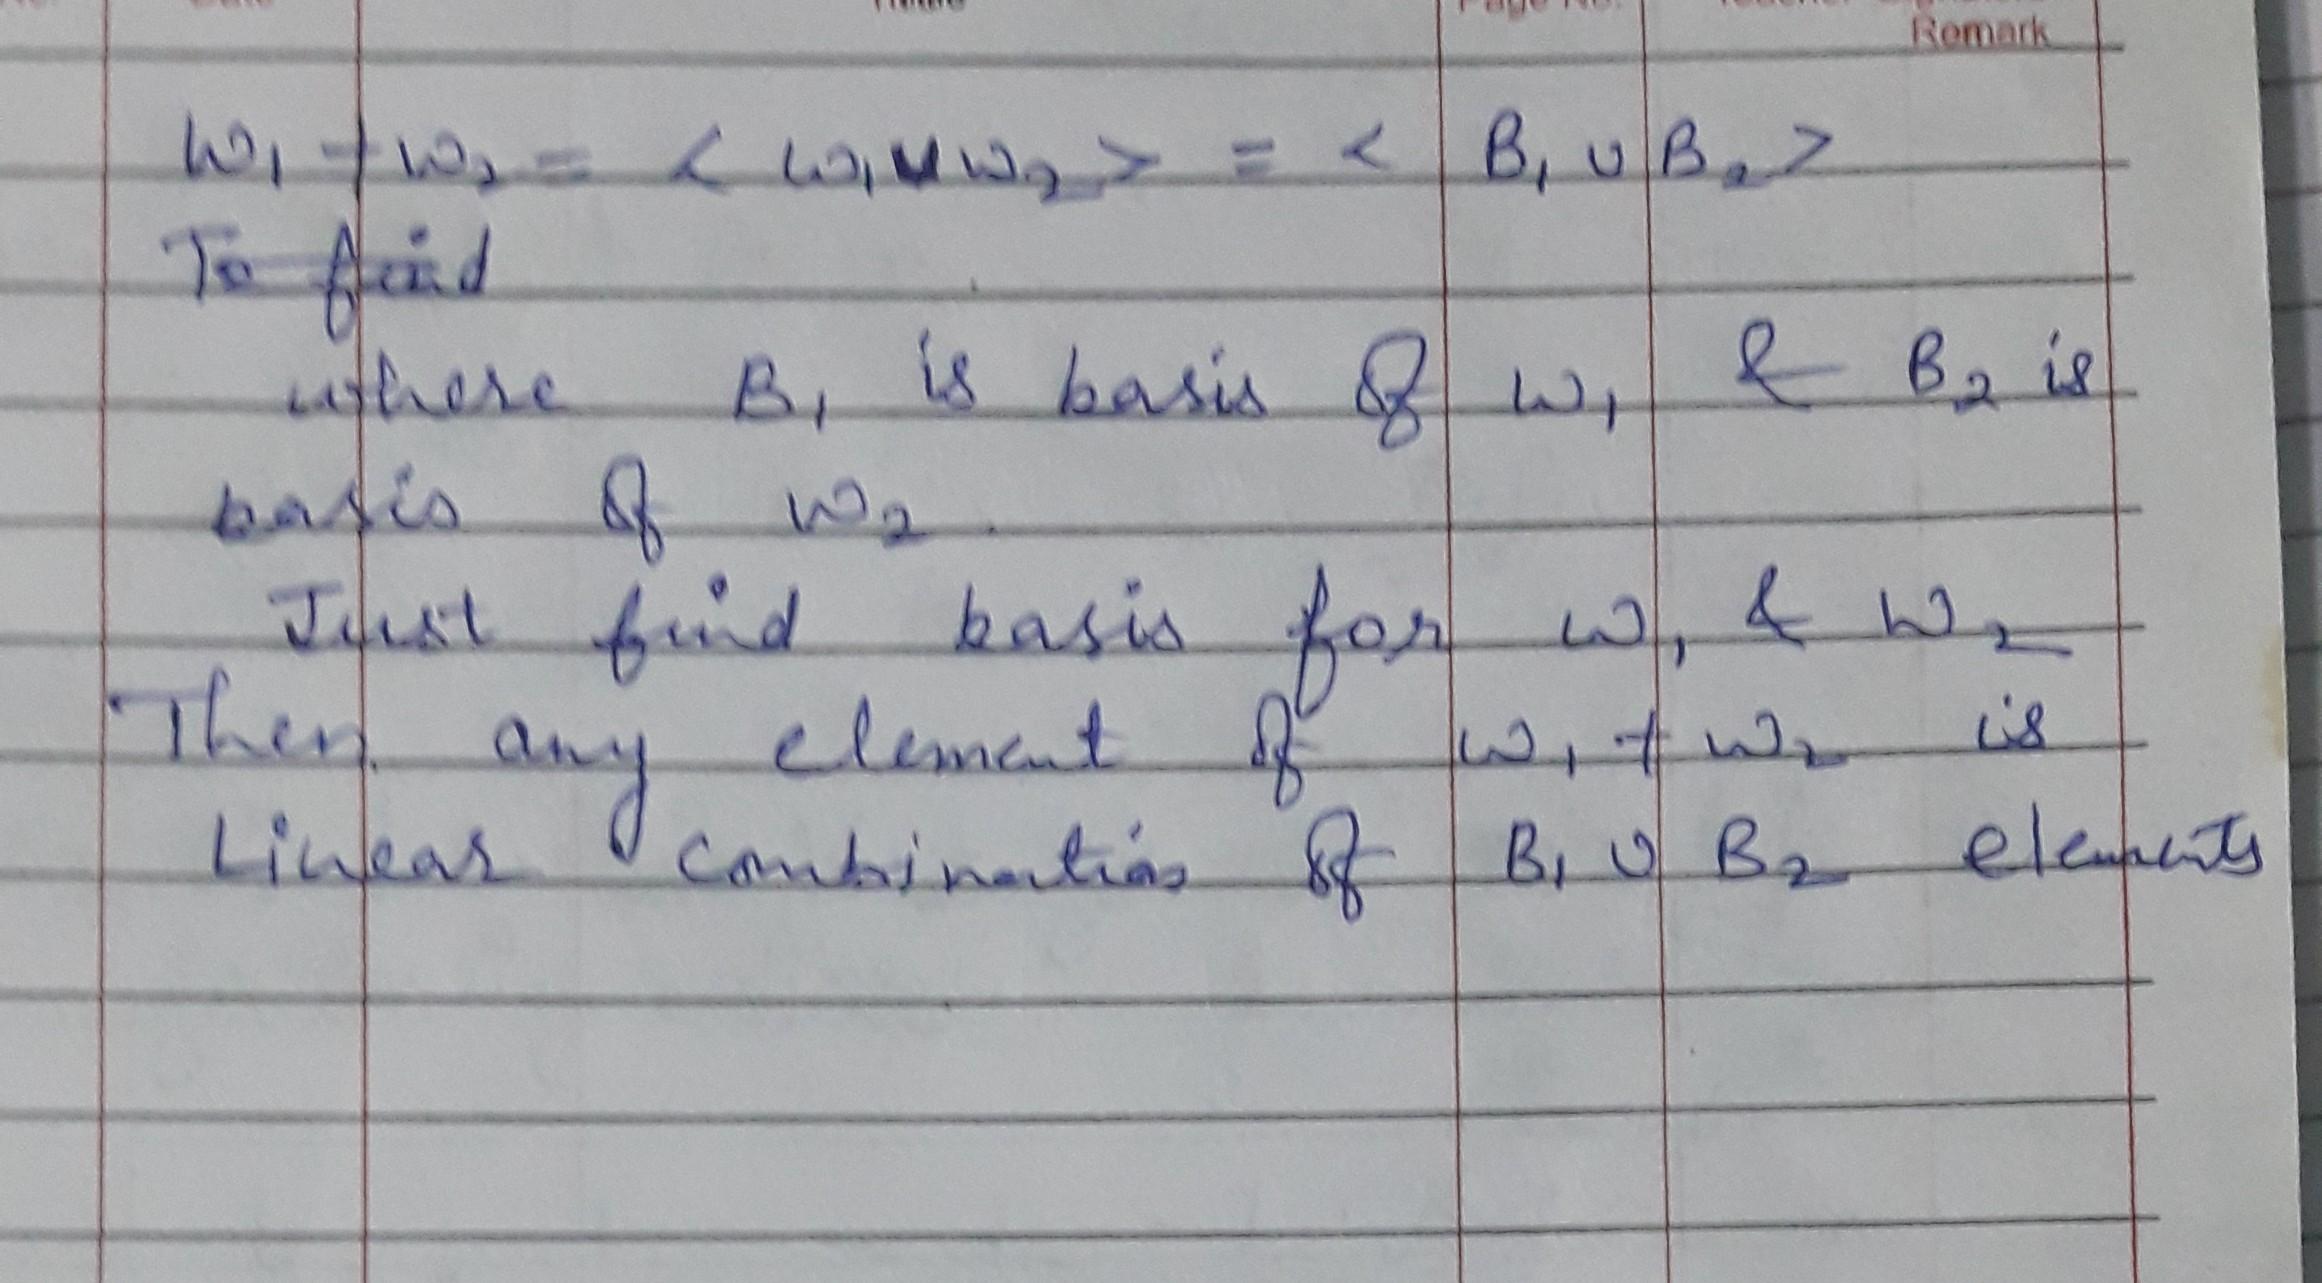 Remark
W₁ + W₂ = < W₁ ∪ W₂ > = < B₁ ∪ B₂ >
To find
where B₁ is basis of W₁ & B₂ is
basis of W₂.
Just find basis for W₁ & W₂
Then any element of W₁ + W₂ is
Linear combination of B₁ ∪ B₂ elements